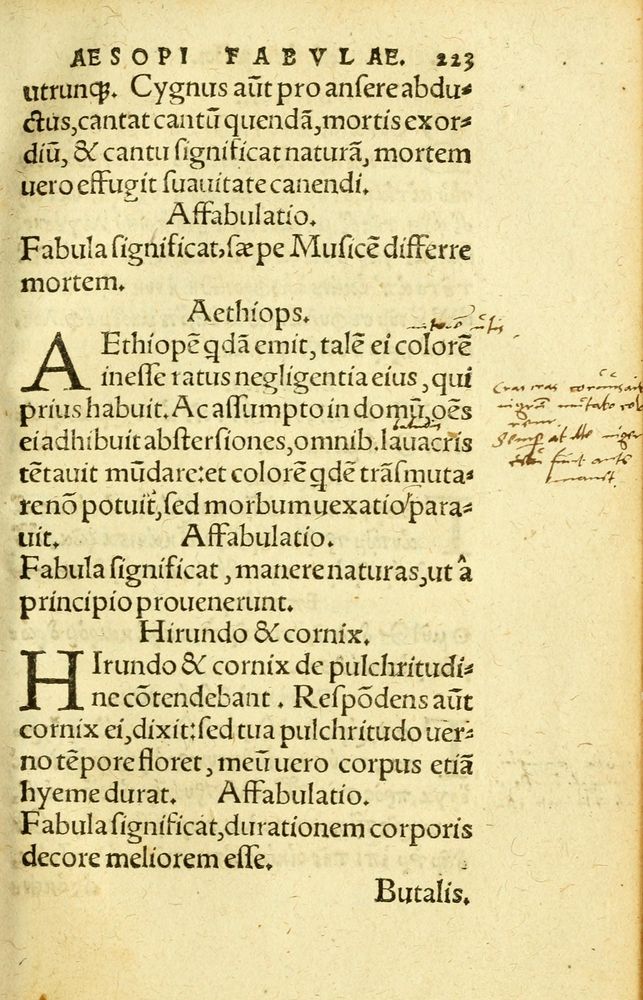 AESOPI FABVLAE. 223
utrunq̃. Cygnus aũt pro ansere abdu-
ctus, cantat cantũ quendã, mortis exor-
diũ, & cantu significat naturã, mortem
uero effugit suauitate canendi.
Affabulatio.
Fabula significat, sæpe Musicẽ differre
mortem.
Aethiops.
AEthiopẽ qdã emit, talẽ ei colorẽ
inesse ratus negligentia eius, qui
prius habuit. Ac assumpto in domũ, oẽs
ei adhibuit abstersiones, omnib. lauacris
tẽtauit mũdare: et colorẽ qdẽ trãsmuta-
re nõ potuit, sed morbum uexatio para-
uit. Affabulatio.
Fabula significat, manere naturas, ut â
principio prouenerunt.
Hirundo & cornix.
HIrundo & cornix de pulchritudi-
ne cõtendebant. Respõdens aũt
cornix ei, dixit: sed tua pulchritudo uer-
no tẽpore floret, meũ uero corpus etiã
hyeme durat. Affabulatio.
Fabula significat, durationem corporis
decore meliorem esse.
Butalis.